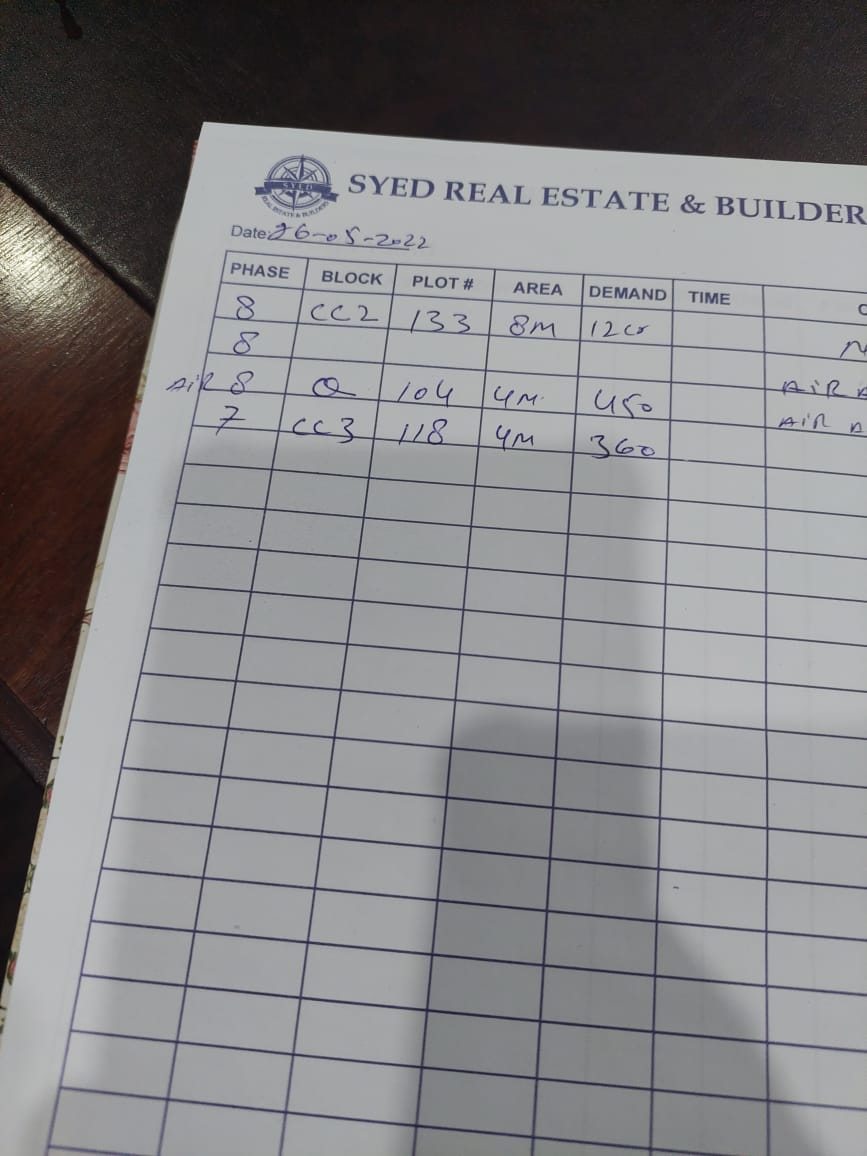 SYED
REAL ESTATE & BUILDERS
SYED REAL ESTATE & BUILDER
Date: 26-05-2022
PHASE BLOCK PLOT # AREA DEMAND TIME
8 CC2 133 8M 12cr
8
AiR 8 Q 104 4M 450 AiR A
7 CC3 118 4M 360 AiR A